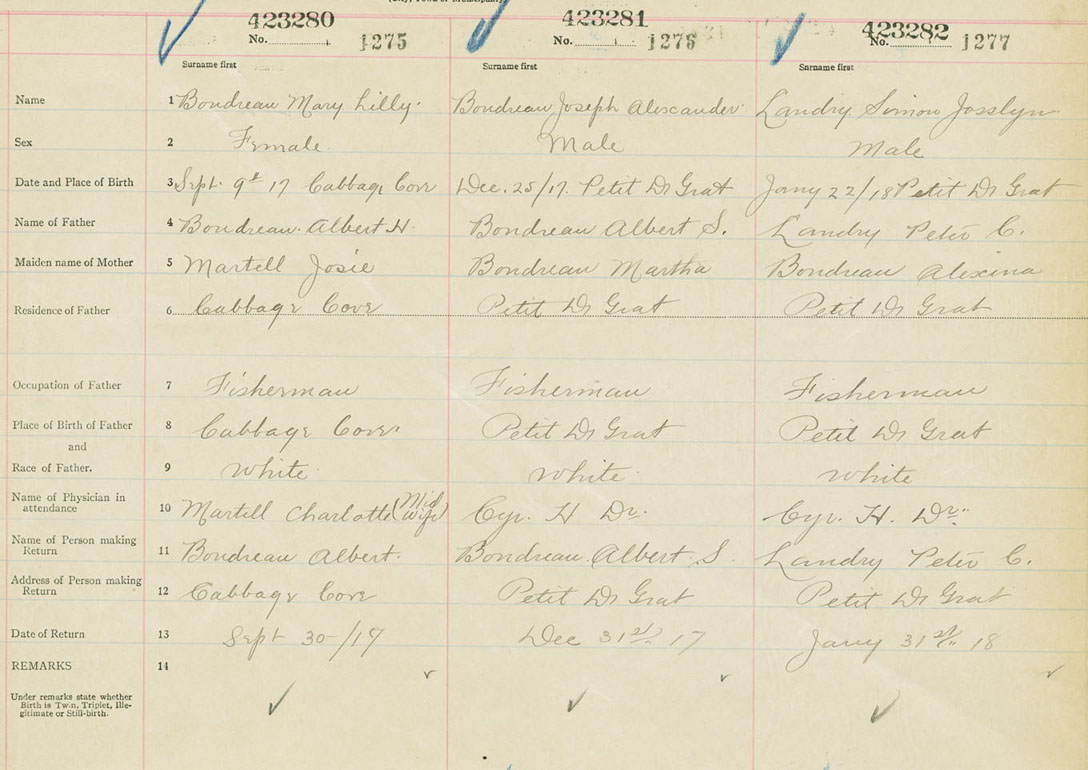 423280 423281 423282
No. 1275 No. 1276 No. 1277
Surname first Surname first Surname first
Name 1 Bondreau Mary Lilly. Bondreau Joseph Alexcander Landry Simon Josslyn
Sex 2 Female. Male Male
Date and Place of Birth 3 Sept. 9th 17 Cabbage Cove Dec. 25/17. Petit De Grat Jany 22/18 Petit De Grat
Name of Father 4 Bondreau. Albert H. Bondreau Albert S. Landry Peter C.
Maiden name of Mother 5 Martell Josie Bondreau Martha Bondreau Alexina
Residence of Father 6 Cabbage Cove Petit De Grat Petit De Grat
Occupation of Father 7 Fisherman Fisherman Fisherman
Place of Birth of Father 8 Cabbage Cove. Petit De Grat Petit De Grat
and
Race of Father. 9 White. White. White
Name of Physician in
attendance 10 Martell Charlotte (Mid wife) Cyr. H Dr. Cyr. H. Dr.
Name of Person making
Return 11 Bondreau Albert. Bondreau. Albert S. Landry Peter C.
Address of Person making
Return 12 Cabbage Cove Petit De Grat Petit De Grat
Date of Return 13 Sept 30/17 Dec 31st 17 Jany 31st 18
REMARKS 14
Under remarks state whether
Birth is Twin, Triplet, Ille-
gitimate or Still-birth.